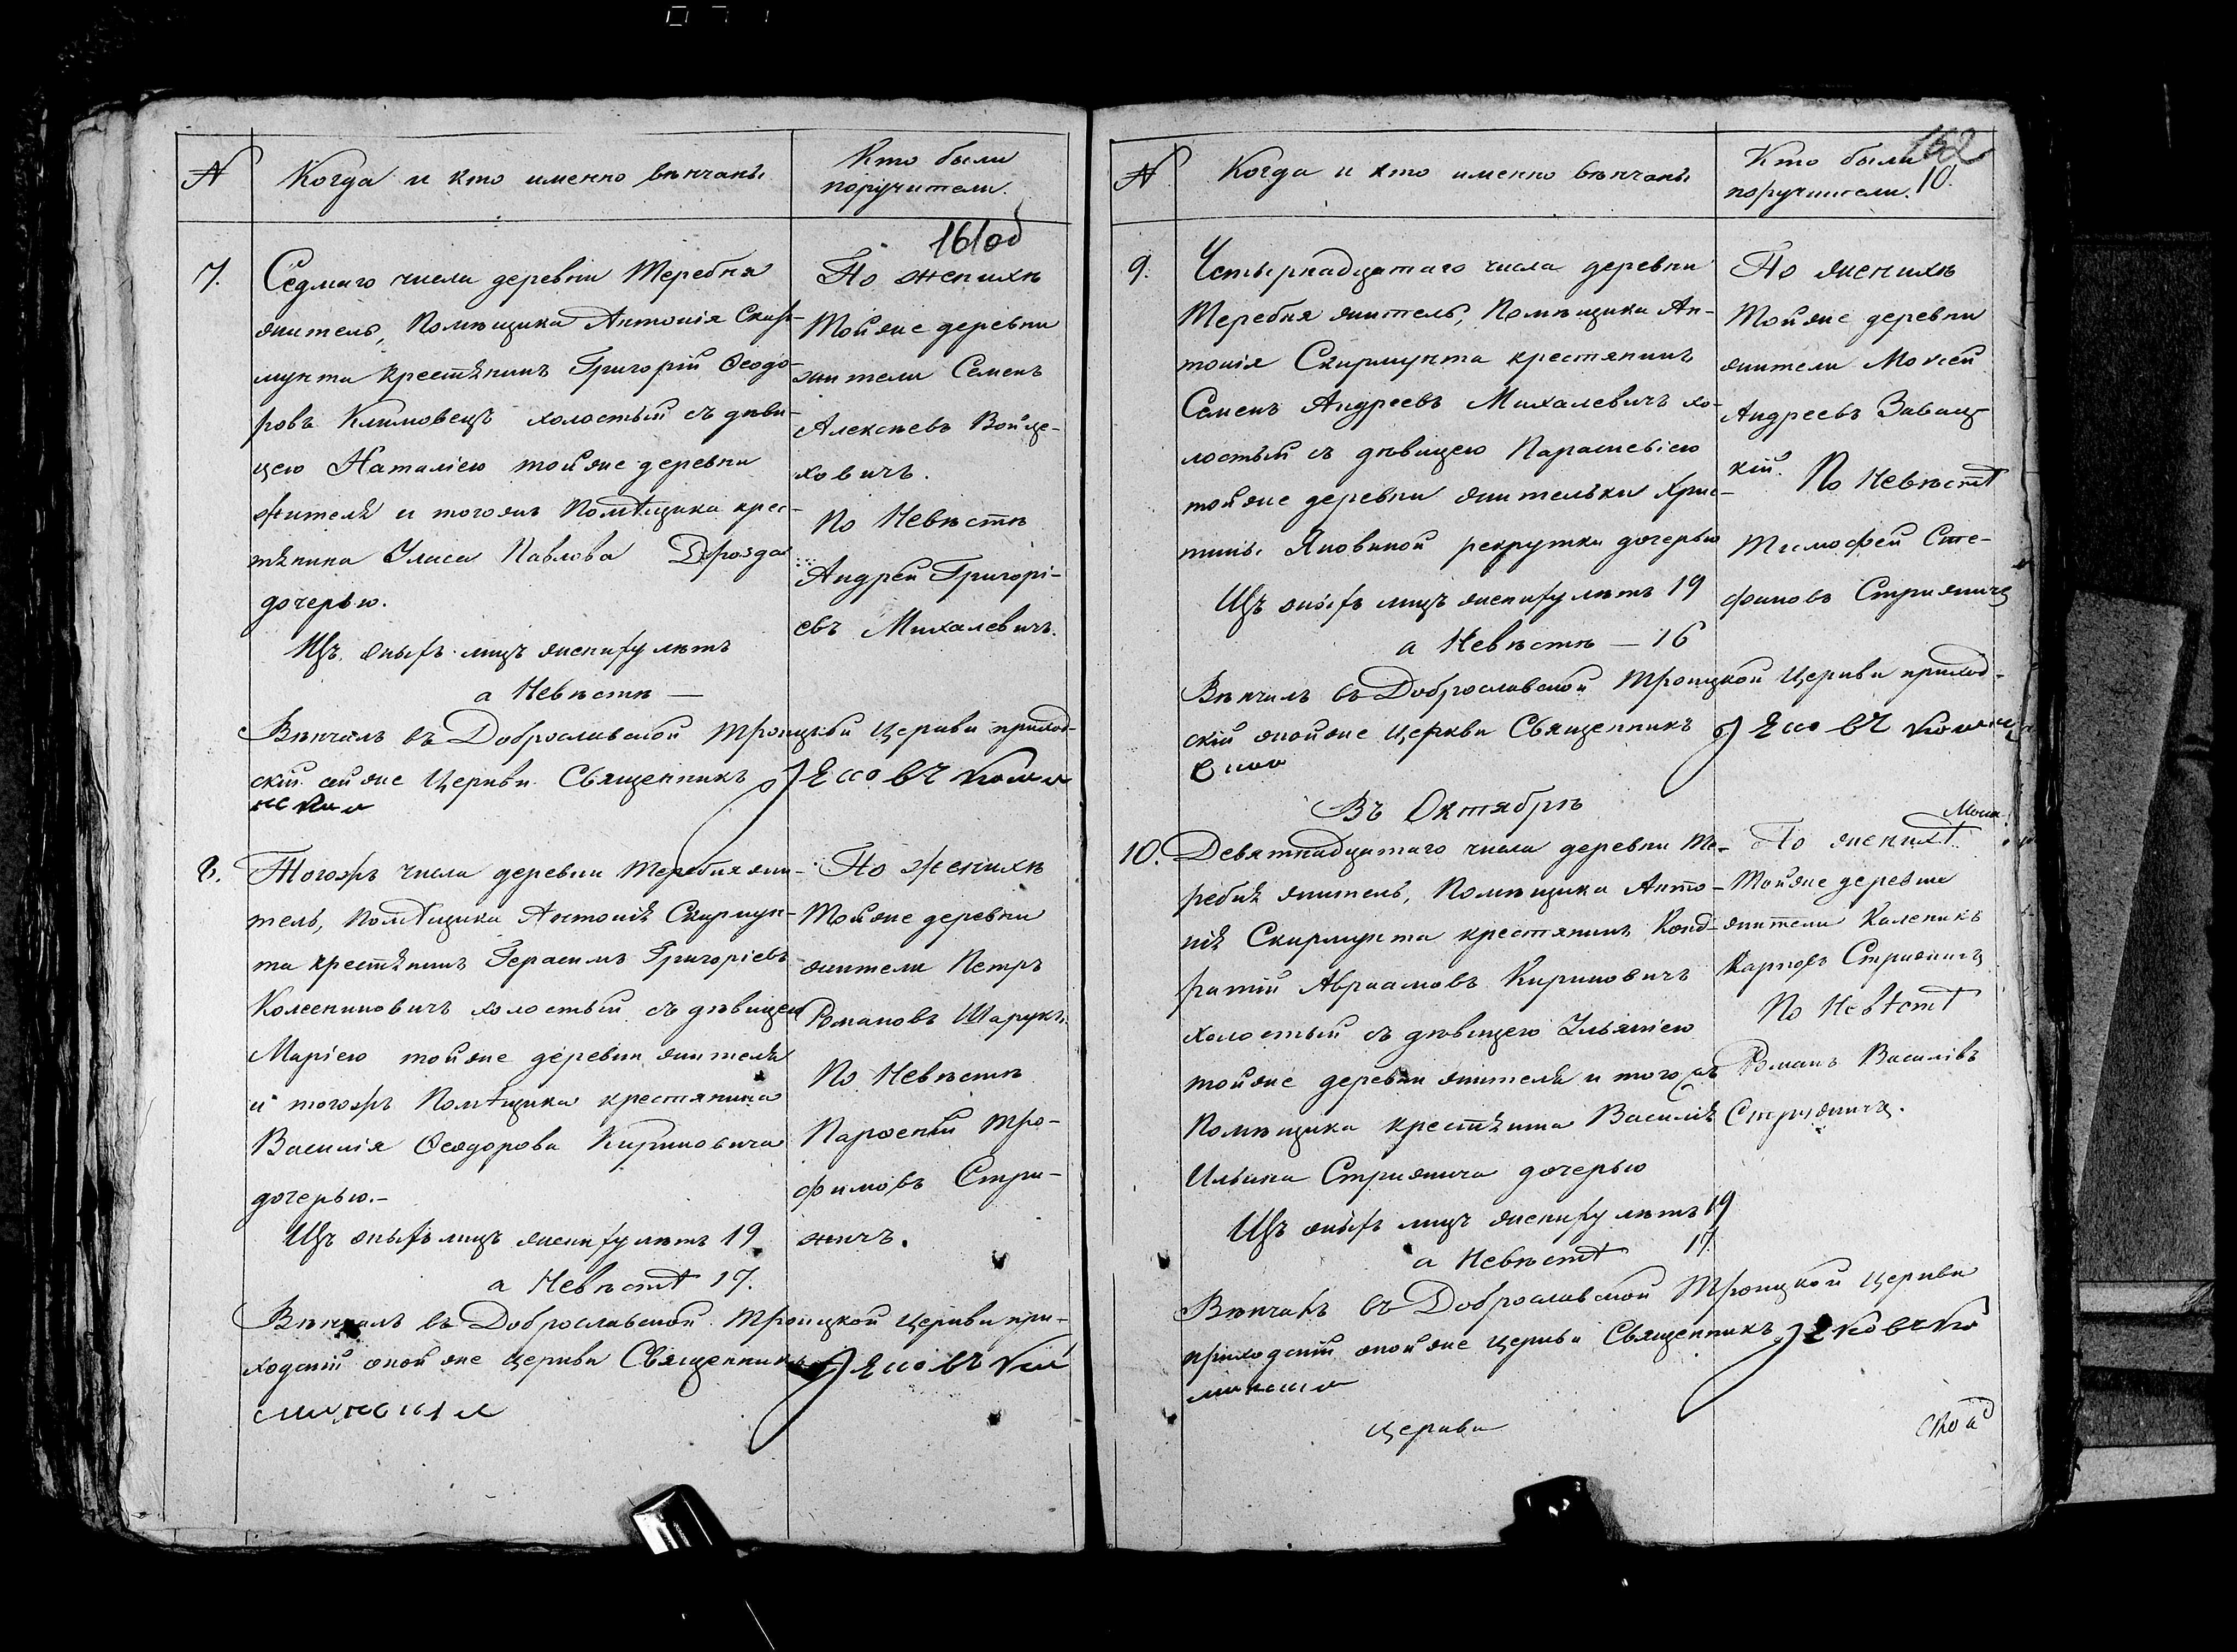 №
Когда и кто именно вѣнчаны
Кто были
поручители.
161об
7.
Седмаго числа деревни Теребня
житель, Помѣщика Антонія Скир-
мунта крестьянинъ Григорій Ѳеодо-
ровъ Климовецъ холостый съ дѣви-
цею Наталіею тойже деревни
жителя и тогожъ Помѣщика крес-
тянина Улиса Павлова Дрозда
дочерью.
Изъ оныхъ лицъ жениху лѣтъ
а Невѣстѣ —
Вѣнчалъ въ Доброславской Троицкой Церкви приход-
скій Церкви Священникъ
По женихѣ
Тойже деревни
жители Семенъ
Алексѣевъ Войце-
ховичъ.
По Невѣстѣ
Андрей Григорі-
евъ Михалевичъ.
8.
Тогожъ числа деревни Теребня жи-
тель, Помѣщика Антонія Скирмун-
та крестьянинъ Герасимъ Григоріевъ
Колесниковичъ холостый съ дѣвицею
Маріею тойже деревни жителя
и тогожъ Помѣщика крестянина
Василія Ѳеодорова Кириковича
дочерью.-
Изъ оныхъ лицъ жениху лѣтъ 19
а Невѣстѣ 17.
Вѣнчалъ въ Доброславской Троицкой Церкви при-
ходскій онойже Церкви Священникъ
По женихѣ
Тойже деревни
жители Петръ
Романовъ Шарукъ.
По Невѣстѣ
Тро-
фимовъ Стри-
жичъ.
162
10.
№
Когда и кто именно вѣнчаны
Кто были
поручители.
9.
Четырнадцатаго числа деревни
Теребня житель, Помѣщика Ан-
тонія Скирмунта крестянинъ
Семенъ Андреевъ Михалевичъ хо-
лостый съ дѣвицею Параскевіею
тойже деревни жительки Хрис-
тины Яковиной рекрутки дочерью
Изъ оныхъ лицъ жениху лѣтъ 19
а Невѣстѣ — 16
Вѣнчалъ въ Доброславской Троицкой Церкви приход-
скій онойже Церкви Священникъ
По женихѣ
Тойже деревни
жители Моисей
Андреевъ Завац-
кій.
По Невѣстѣ
Тимофей Сте-
фановъ Стрижичъ
Въ Октябрѣ
10.
Девятнадцатаго числа деревни Те-
ребня житель, Помѣщика Анто-
нія Скирмунта крестянинъ Конд-
ратій Авраамовъ Кириковичъ
холостый съ дѣвицею Ульяніею
тойже деревни жителя и тогожъ
Помѣщика крестьянина Василія
Ильина Стрижича дочерью
Изъ оныхъ лицъ жениху лѣтъ 19
а Невѣстѣ 17.
Вѣнчалъ въ Доброславской Троицкой Церкви
приходскій онойже Церкви Священникъ
По женихѣ
Тойже деревни
жители Каленикъ
Карповъ Стрижичъ
По Невѣстѣ
Романъ Василіевъ
Стрижичъ.
Церкви